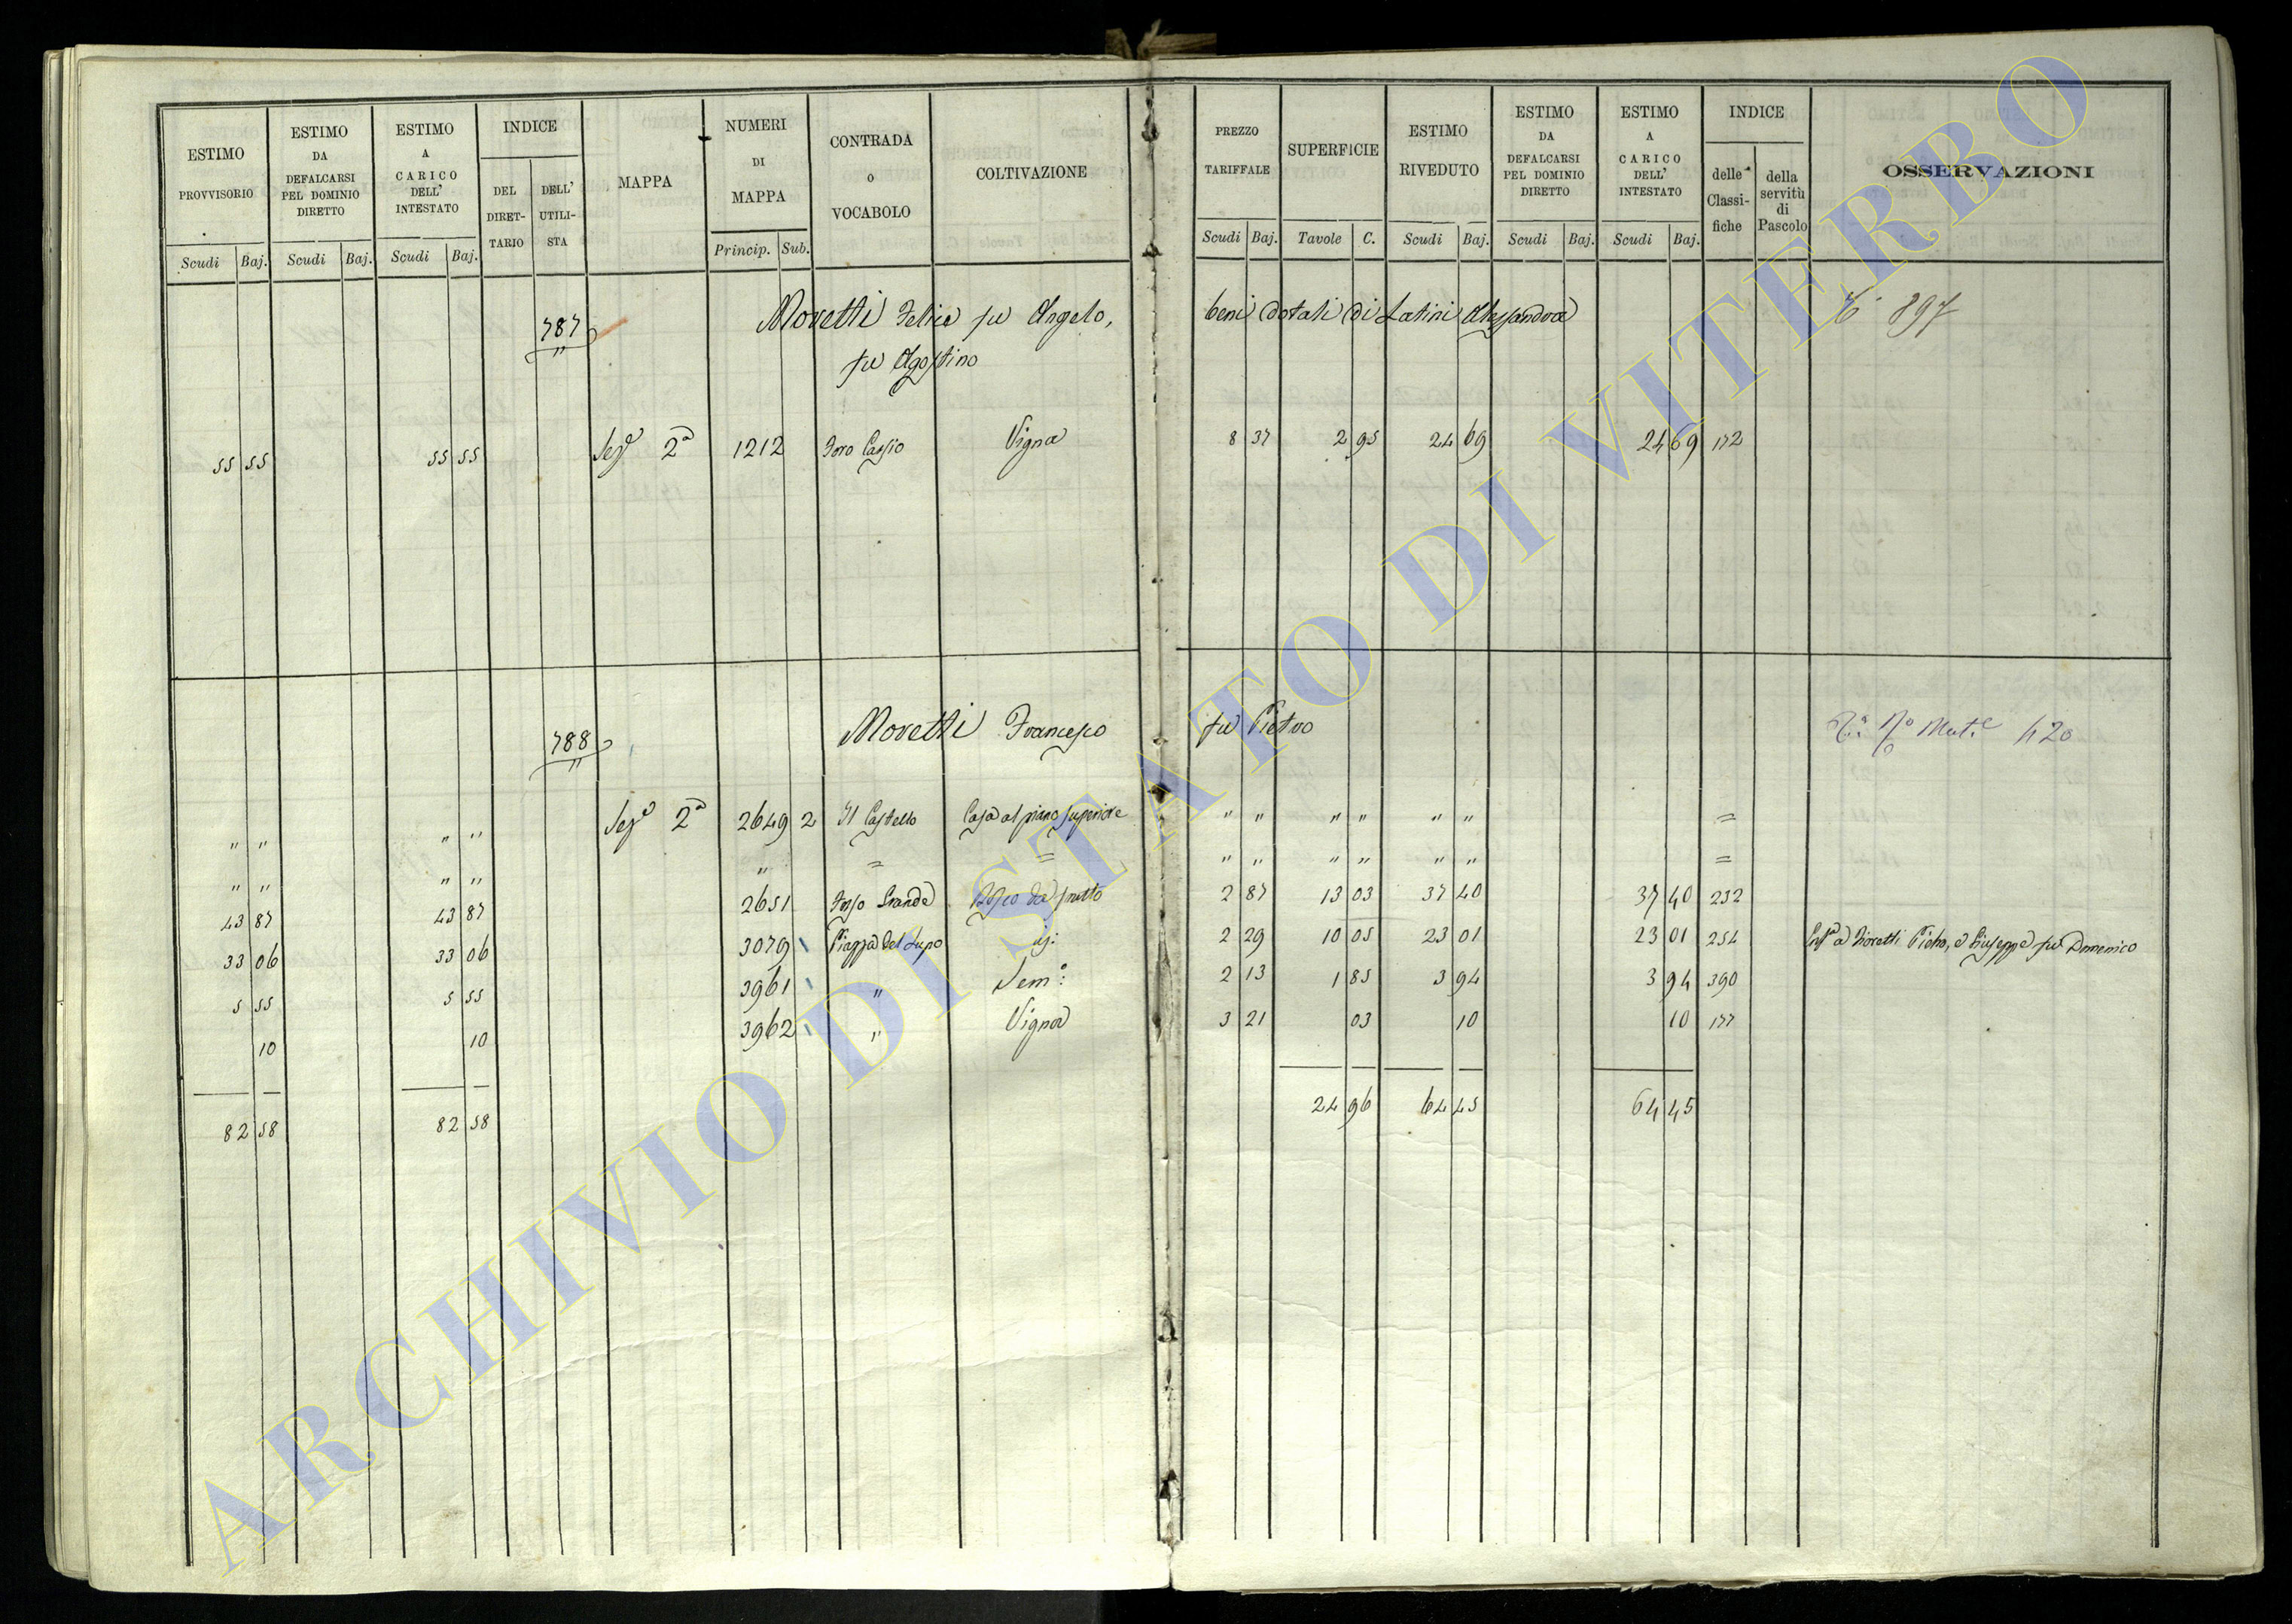 ESTIMO PROVVISORIO
ESTIMO DA DEFALCARSI PEL DOMINIO DIRETTO
ESTIMO A CARICO DELL' INTESTATO
INDICE
DEL DIRET-TARIO
DELL' UTILI-STA
MAPPA
NUMERI DI MAPPA
CONTRADA O VOCABOLO
COLTIVAZIONE
PREZZO TARIFFALE
SUPERFICIE
ESTIMO RIVEDUTO
ESTIMO DA DEFALCARSI PEL DOMINIO DIRETTO
ESTIMO A CARICO DELL' INTESTATO
INDICE
delle Classi-fiche
della servitù di Pascolo
OSSERVAZIONI
Scudi Baj. Scudi Baj. Scudi Baj. Princip. Sub. Scudi Baj. Tavole C. Scudi Baj. Scudi Baj. Scudi Baj.
787 Moretti Felice fu Angelo, beni dotali di Latini Alessandra 897
fu Agostino
55 55 55 55 Sezе 2a 1212 Foro Cassio Vigna 8 37 2 95 24 69 24 69 172
788 Moretti Francesco fu Pietro 420
" " " " 2a 2649 2 Il Castello Casa al piano superiore " " " " " " =
" " " " " = = " " " " " " =
43 87 43 87 2651 Fosso Grande Bosco da frutto 2 87 13 03 37 40 37 40 232
33 06 33 06 3079 Piazza del Lupo id: 2 29 10 05 23 01 23 01 254 Moretti Pietro, e Giuseppe fu Domenico
5 55 5 55 3961 " Semo: 2 13 1 85 3 94 3 94 390
10 10 3962 " Vigna 3 21 03 10 10 177
82 58 82 58 24 96 64 45 64 45
ARCHIVIO DI STATO DI VITERBO